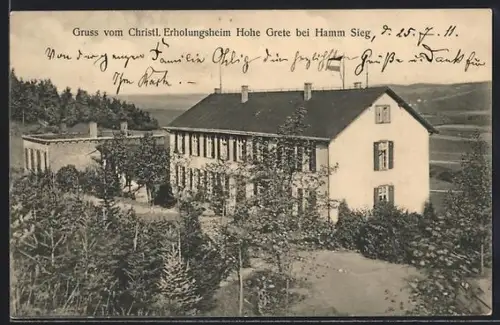 Gruss vom Christl. Erholungsheim Hohe Grete bei Hamm Sieg, d. 25. 7. 11.
Von der ganzen Familie die herzlichsten Grüße u. Dank für
Ihre Karte.